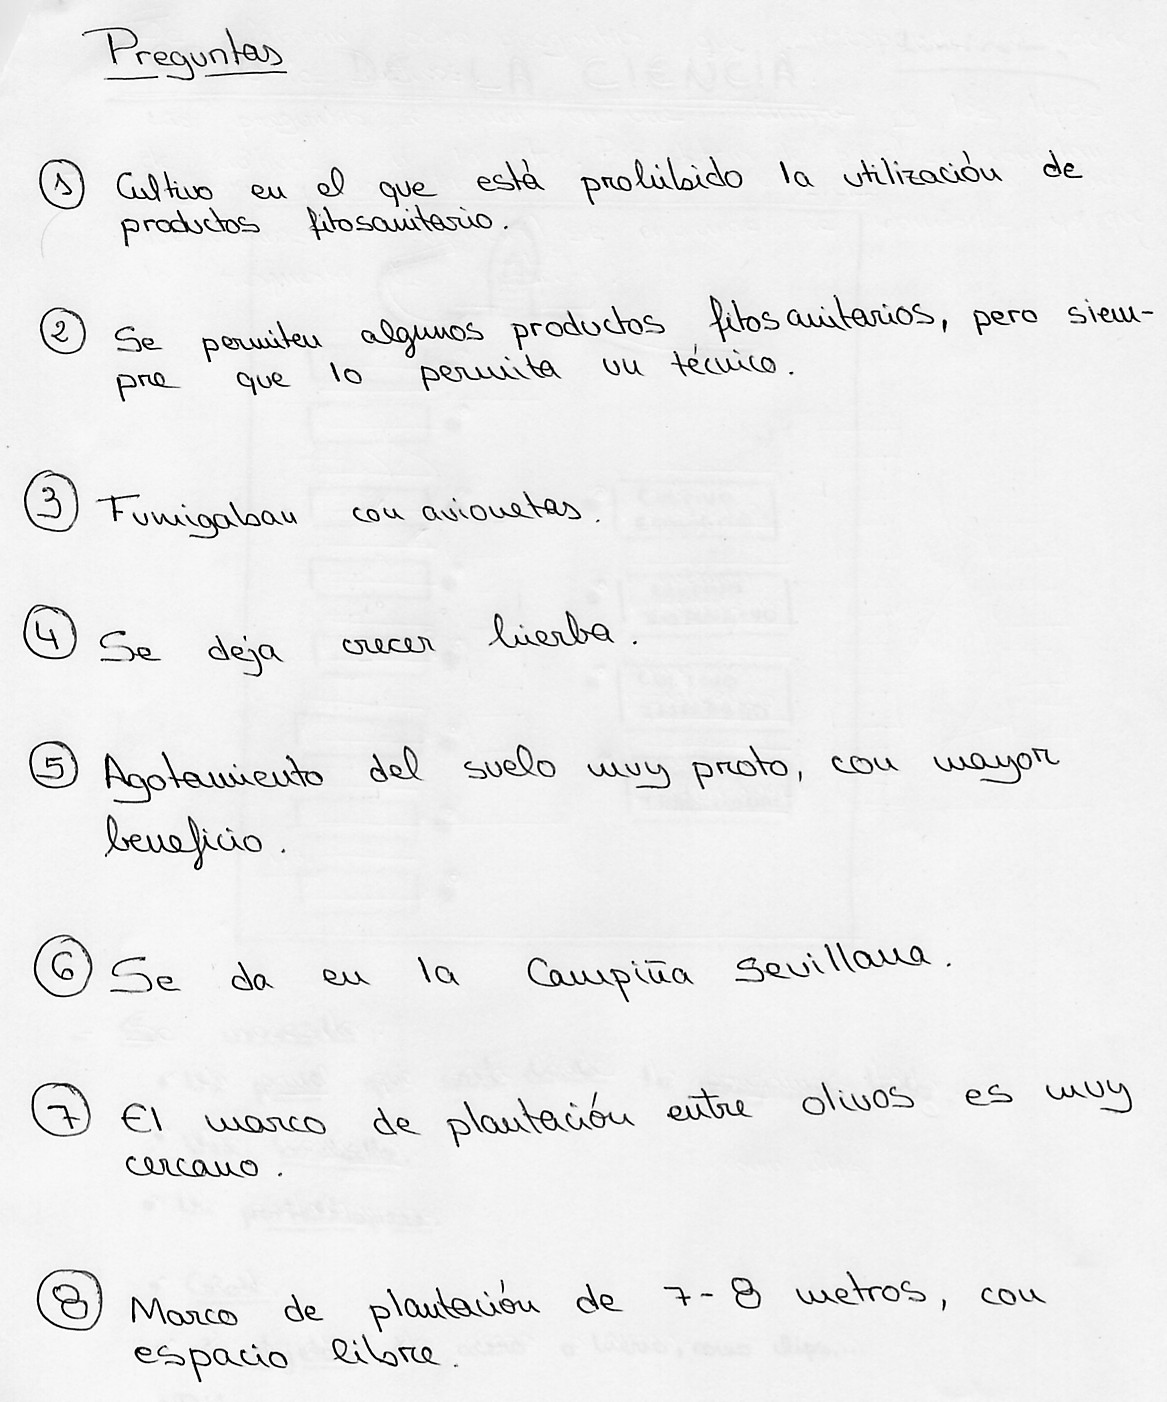 Preguntas
① Cultivo en el que está prohibido la utilización de
productos fitosanitario.
② Se permiten algunos productos fitosanitarios, pero siem-
pre que lo permita un técnico.
③ Fumigaban con avionetas.
④ Se deja crecer hierba.
⑤ Agotamiento del suelo muy proto, con mayor
beneficio.
⑥ Se da en la Campiña Sevillana.
⑦ El marco de plantación entre olivos es muy
cercano.
⑧ Marco de plantación de 7-8 metros, con
espacio libre.